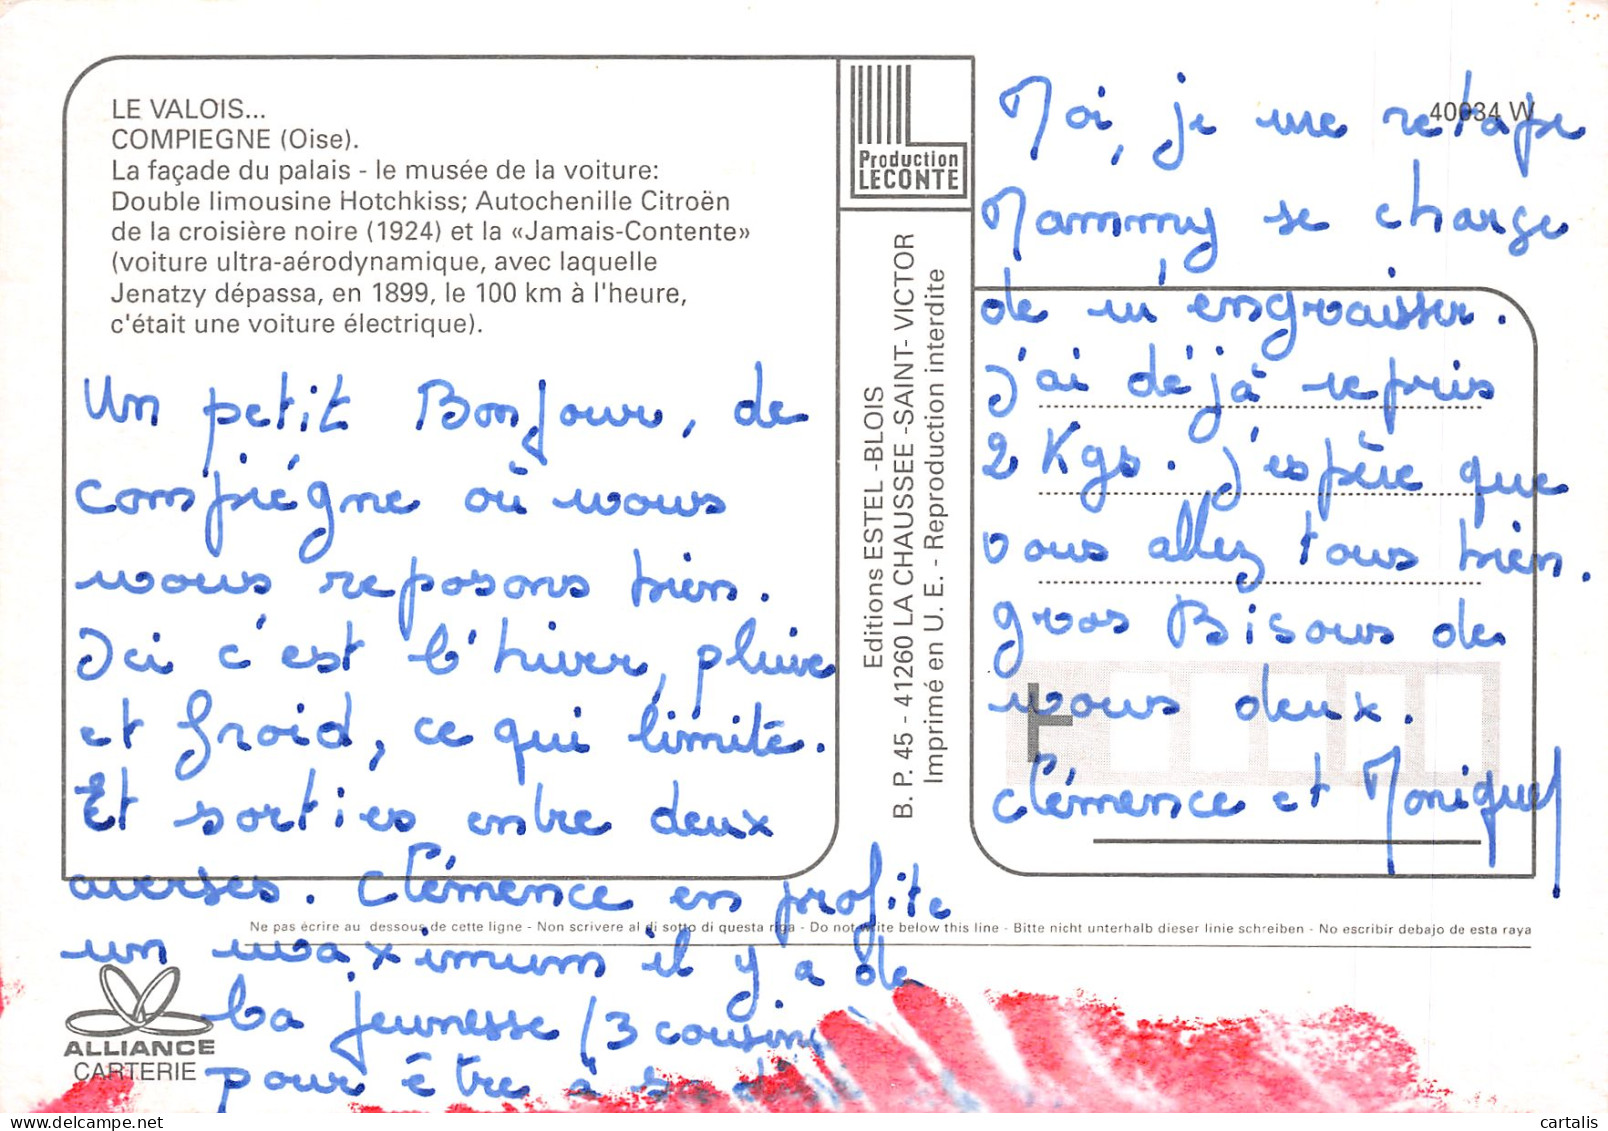 LE VALOIS...
COMPIEGNE (Oise).
La façade du palais - le musée de la voiture:
Double limousine Hotchkiss; Autochenille Citroën
de la croisière noire (1924) et la «Jamais-Contente»
(voiture ultra-aérodynamique, avec laquelle
Jenatzy dépassa, en 1899, le 100 km à l'heure,
c'était une voiture électrique).
Un petit Bonjour, de
compiégne où nous
nous reposons bien.
Ici c'est l'hiver, pluie
et froid, ce qui limite.
Et sorties entre deux
averses. Clémence en profite
un maximum il y a de
la jeunesse (3 cousin
pour être à sa
Production
LECONTE
Editions ESTEL -BLOIS
B. P. 45 - 41260 LA CHAUSSEE -SAINT- VICTOR
Imprimé en U. E. - Reproduction interdite
40034 W
Moi, je me retape
Mammy se charge
de m'engraisser.
J'ai déjà repris
2 Kgs. J'espère que
vous allez tous bien.
gros Bisous de
nous deux.
Clémence et Monique
Ne pas écrire au dessous de cette ligne - Non scrivere al di sotto di questa riga - Do not write below this line - Bitte nicht unterhalb dieser linie schreiben - No escribir debajo de esta raya
ALLIANCE
CARTERIE
cartalis